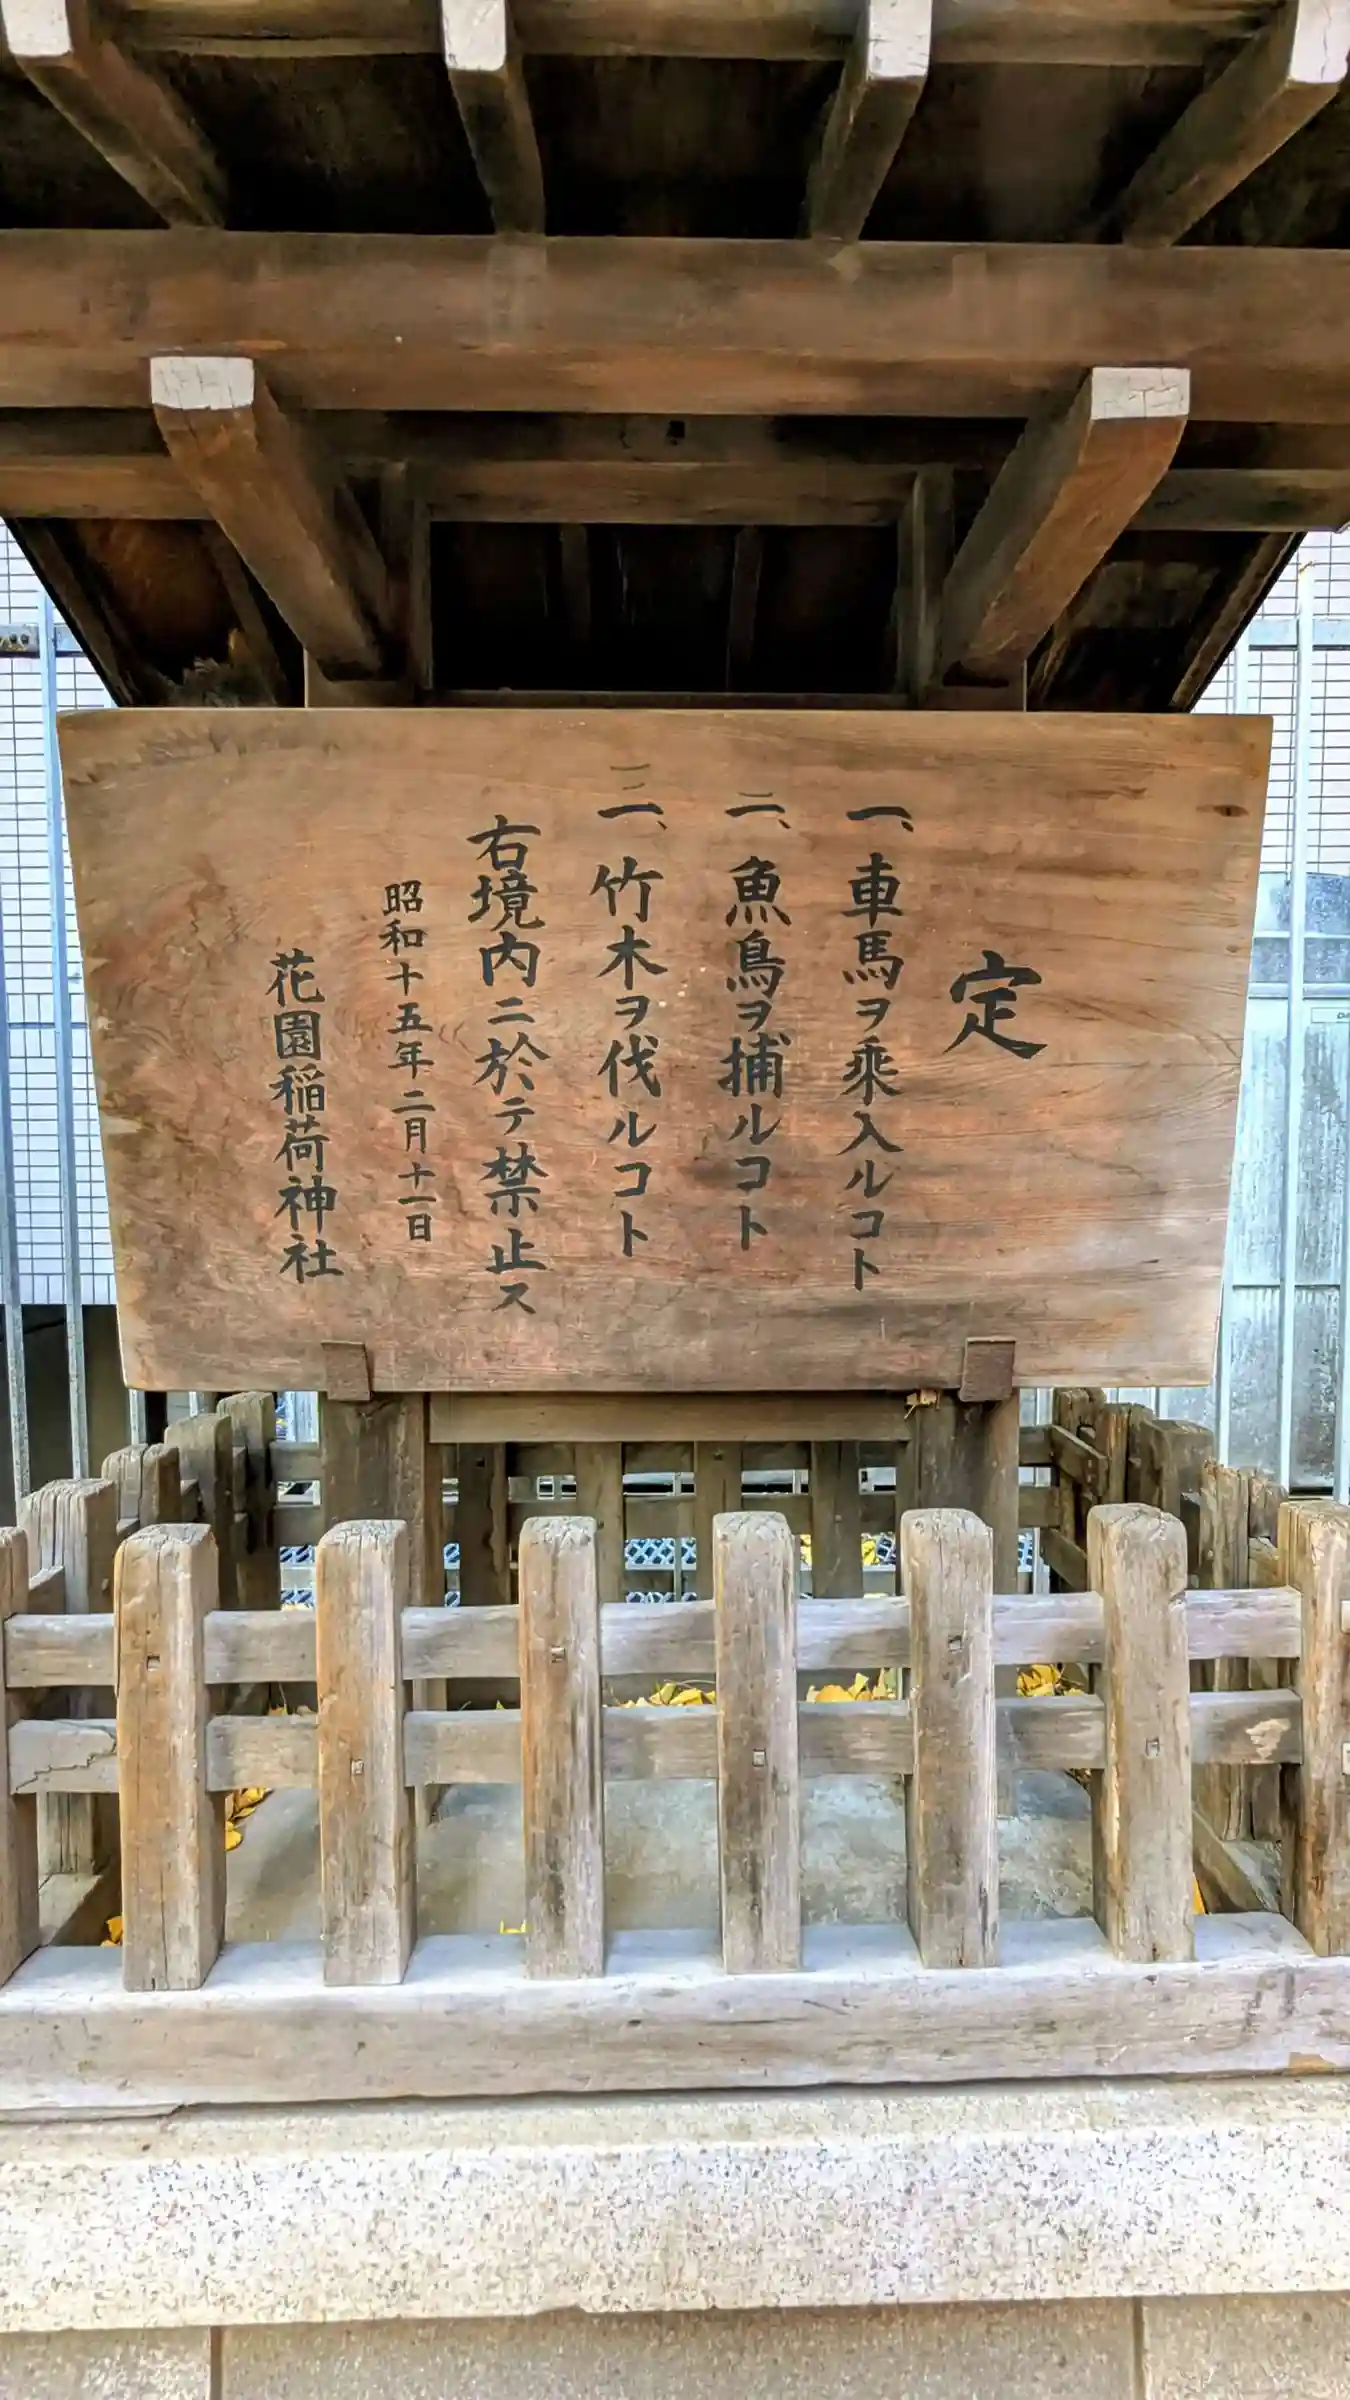 定
一、車馬ヲ乗入ルコト
二、魚鳥ヲ捕ルコト
三、竹木ヲ伐ルコト
右境内ニ於テ禁止ス
昭和十五年二月十一日
花園稲荷神社